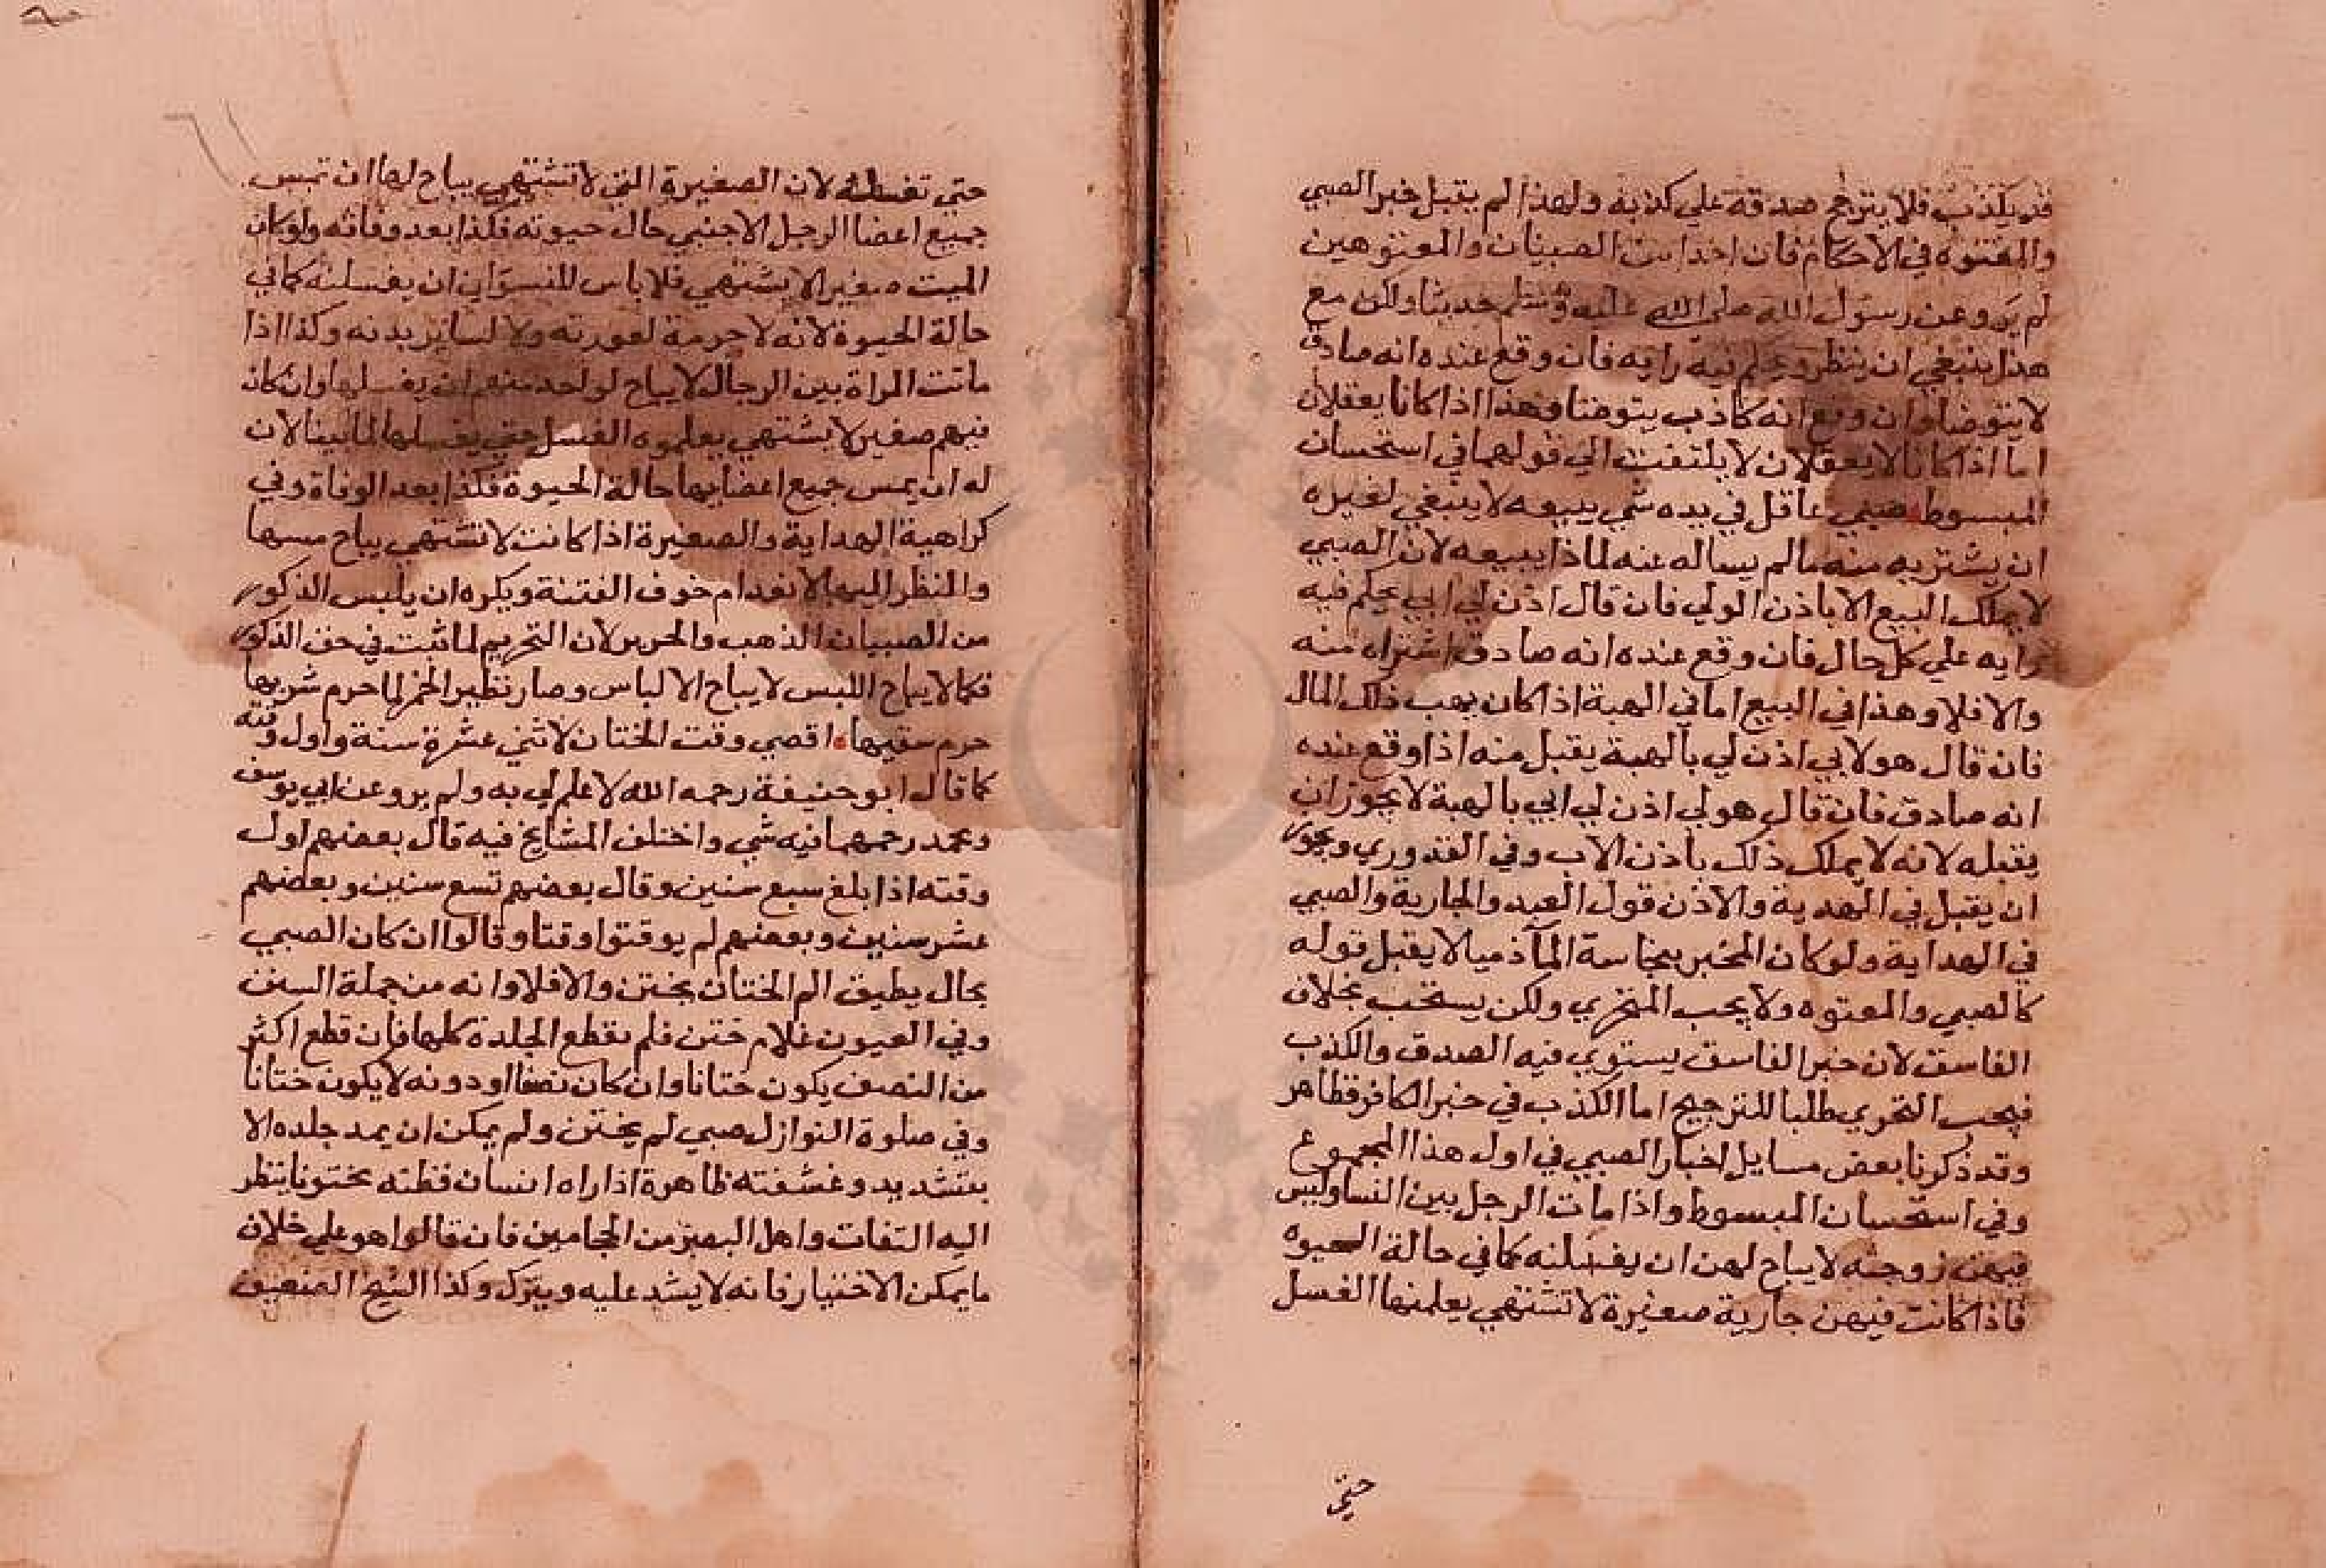 قد يكذب فلا يترجح صدقه علي كذبه ولهذا لم يقبل خبر الصبي
والمعتوه في الاحكام فان احدا من الصبيان والمعتوهين
لم يرو عن رسول الله صلى الله عليه وسلم حديثا ولكن مع
هذا ينبغي ان ينظر ويحكم فيه رايه فان وقع عنده انه صادق
لا يتوضا وان وقع انه كاذب يتوضا وهذا اذا كانا يعقلان
اما اذا كانا لا يعقلان لا يلتفت الي قولهما في استحسان
المبسوط صبي عاقل في يده شي يبيعه لا ينبغي لغيره
ان يشتريه منه مالم يساله عنه لماذا يبيعه لان الصبي
لا يملك البيع الا باذن الولي فان قال اذن لي ابي يحكم فيه
رايه علي كل حال فان وقع عنده انه صادق اشتراه منه
والا فلا وهذا في البيع اما في الهبة اذا كان يهب ذلك المال
فان قال هو لابي اذن لي بالهبة يقبل منه اذا وقع عنده
انه صادق فان قال هو لي اذن لي ابي بالهبة لا يجوز ان
يقبله لانه لا يملك ذلك باذن الاب وفي القدوري ويجوز
ان يقبل في الهدية والاذن قول العبد والجارية والصبي
في الهداية ولو كان المخبر بنجاسة المآ ذميا لا يقبل قوله
كالصبي والمعتوه ولا يجب التحري ولكن يستحب بخلاف
الفاسق لان خبر الفاسق يستوي فيه الصدق والكذب
فيجب التحري طلبا للترجيح اما الكذب في خبر الكافر فظاهر
وقد ذكرنا بعض مسايل اخبار الصبي في اول هذا المجموع
وفي استحسان المبسوط واذا مات الرجل بين النسا وليس
فيهن زوجته لا يباح لهن ان يغسلنه كما في حالة الحيوه
فاذا كانت فيهن جارية صغيرة لا تشتهي يعلمنها الغسل
حتي
حتي تغسله لان الصغيرة التي لا تشتهي يباح لها ان تمس
جميع اعضا الرجل الاجنبي حال حيوته فكذا بعد وفاته ولو كان
الميت صغيرا لا يشتهي فلا باس للنسوان ان يغسلنه كما في
حالة الحيوة لانه لا حرمة لعورته ولا لساير بدنه وكذا اذا
ماتت المراة بين الرجال لا يباح لواحد منهم ان يغسلها وان كان
فيهم صغير لا يشتهي يعلموه الغسل حتي يغسلها لما بينا لان
له ان يمس جميع اعضايها حالة الحيوة فكذا بعد الوفاة وفي
كراهية الهداية والصغيرة اذا كانت لا تشتهي يباح مسها
والنظر اليها لانعدام خوف الفتنة ويكره ان يلبس الذكور
من الصبيان الذهب والحرير لان التحريم لما ثبت في حق الذكور
فكما لا يباح اللبس لا يباح الالباس وصار نظير الخمر لما حرم شربها
حرم سقيها اقصي وقت الختان لاثني عشرة سنة واول وقته
كما قال ابو حنيفة رحمه الله لا علم لي به ولم يرو عن ابي يوسف
ومحمد رحمهما فيه شي واختلف المشايخ فيه قال بعضهم اول
وقته اذا بلغ سبع سنين وقال بعضهم تسع سنين وبعضهم
عشر سنين وبعضهم لم يوقتوا وقتا وقالوا ان كان الصبي
بحال يطيق الم الختان يختن والا فلا وانه من جملة السنن
وفي العيون غلام ختن فلم تقطع الجلدة كلها فان قطع اكثر
من النصف يكون ختانا وان كان نصفا او دونه لا يكون ختانا
وفي صلوة النوازل صبي لم يختن ولم يمكن ان يمد جلده الا
بتشديد وحشفته ظاهرة اذا راه انسان فظنه مختونا ينظر
اليه الثقات واهل البصر من الحجامين فان قالوا هو علي خلاف
ما يمكن الاختيار فانه لا يشد عليه ويترك وكذا الشيخ الضعيف